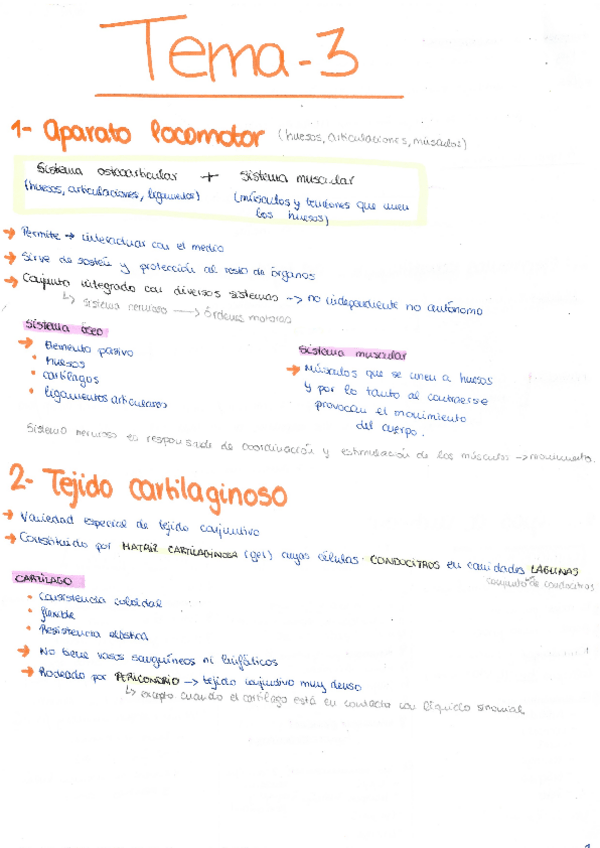 Tema-3
1- Aparato locomotor (huesos, articulaciones, músculos)
Sistema osteoarticular + Sistema muscular
(huesos, articulaciones, ligamentos) (músculos y tendones que unen
los huesos)
→ Permite → interactuar con el medio
→ Sirve de sostén y protección al resto de órganos
→ Conjunto integrado con diversos sistemas → no independiente no autónomo
↳ sistema nervioso → órdenes motoras
Sistema óseo
→ Elemento pasivo
• Huesos
• cartílagos
• ligamentos articulares
Sistema muscular
→ Músculos que se unen a huesos
y por lo tanto al contraerse
provocan el movimiento
del cuerpo.
Sistema nervioso es responsable de coordinación y estimulación de los músculos → movimiento.
2- Tejido cartilaginoso
→ Variedad especial de tejido conjuntivo
→ Constituido por MATRIZ CARTILAGINOSA (gel) cuyas células CONDOCITROS en cavidades LAGUNAS
conjunto de condocitros
CARTÍLAGO
• Consistencia coloidal
• flexible
• Resistencia elástica
→ No tiene vasos sanguíneos ni linfáticos
→ Rodeado por PERICONDRIO → tejido conjuntivo muy denso
↳ excepto cuando el cartílago está en contacto con líquido sinovial
1